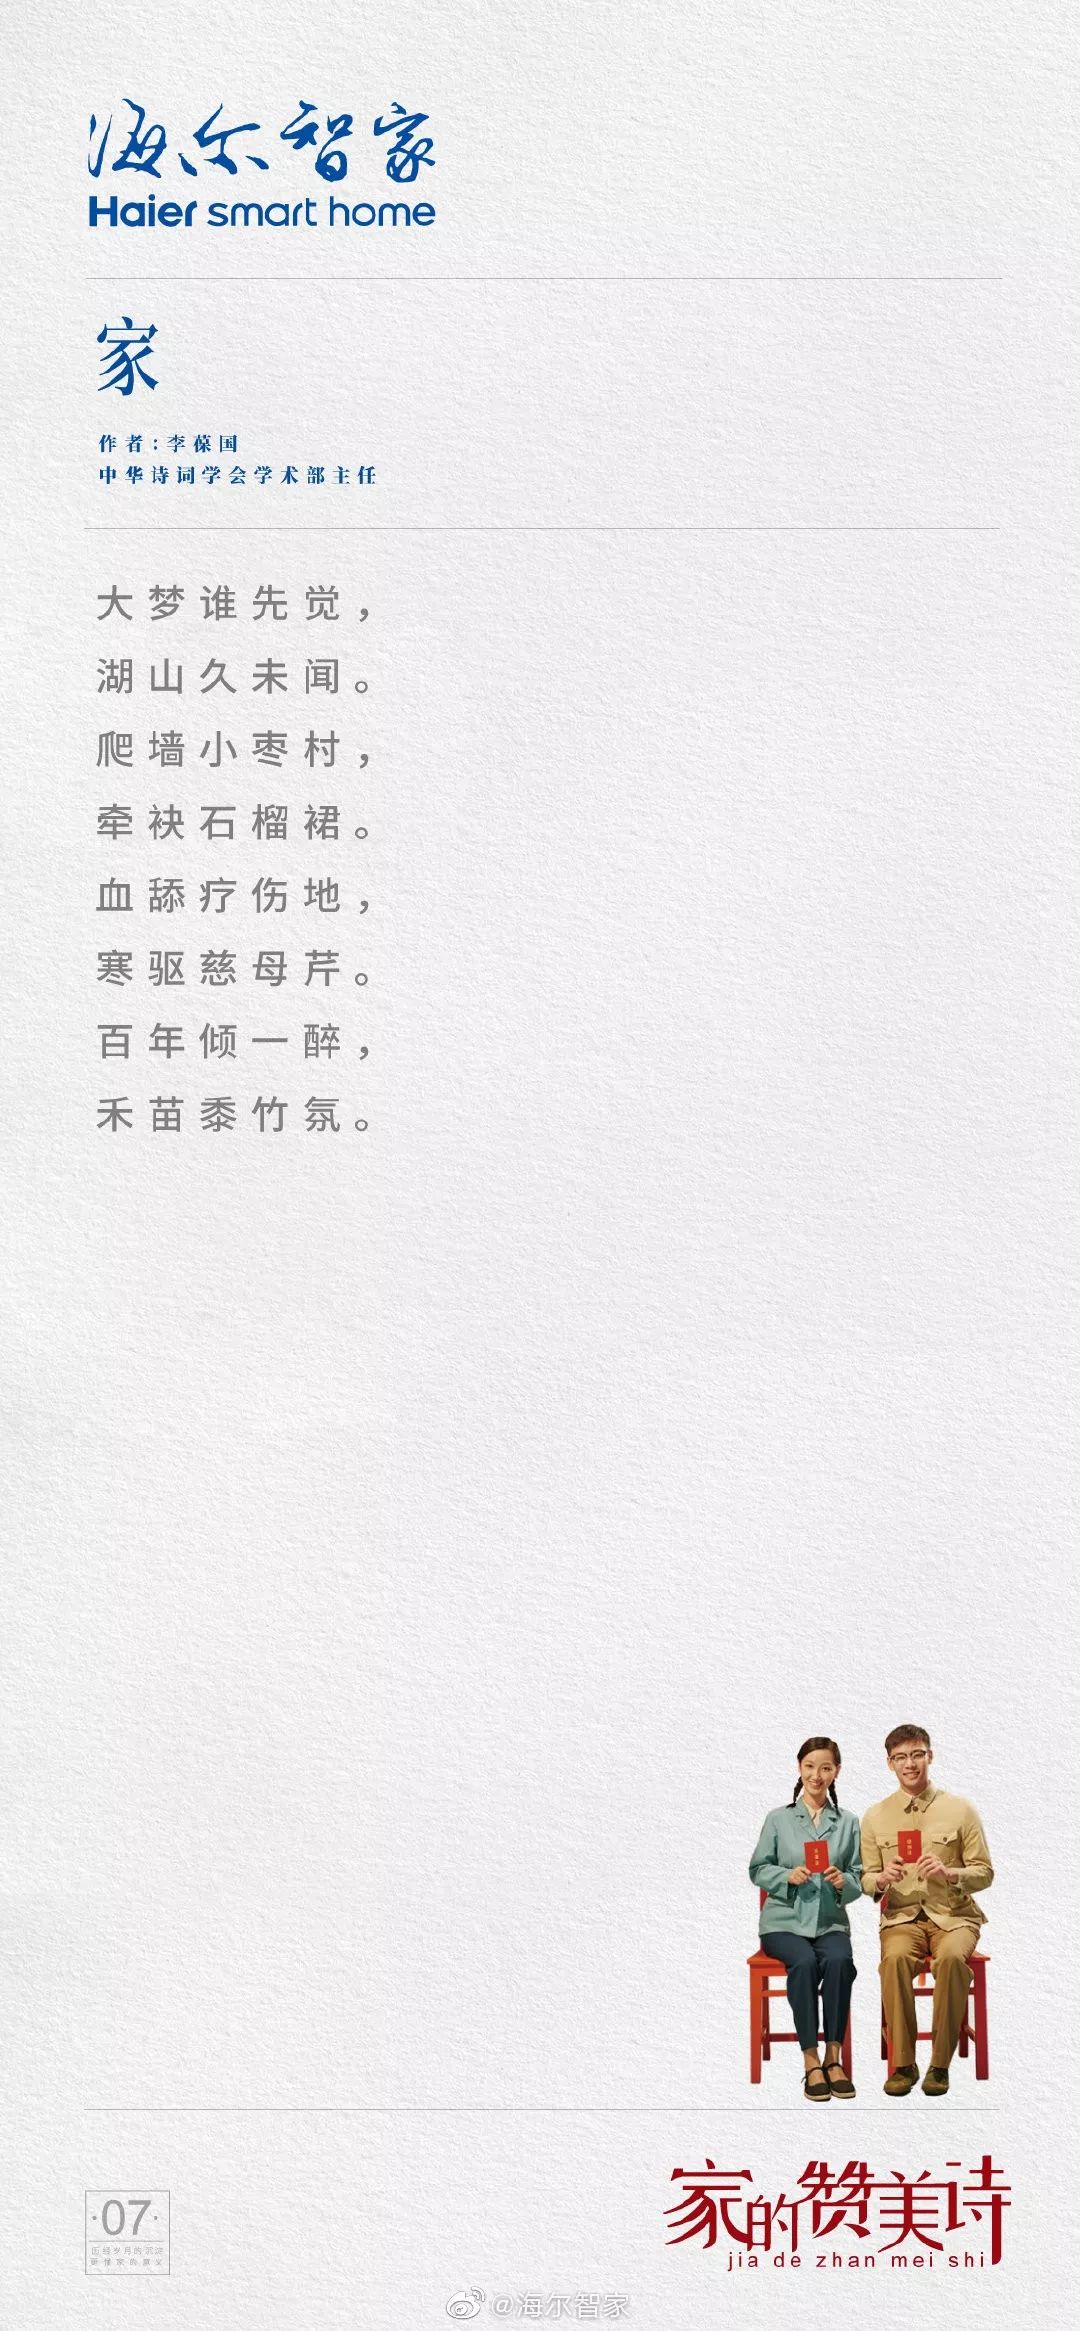 海尔智家
Haier smart home
家
作者:李葆国
中华诗词学会学术部主任
大梦谁先觉，
湖山久未闻。
爬墙小枣村，
牵袂石榴裙。
血舔疗伤地，
寒驱慈母芹。
百年倾一醉，
禾苗黍竹氛。
家的赞美诗
jia de zhan mei shi
·07·
历经岁月的沉淀
更懂家的意义
@海尔智家